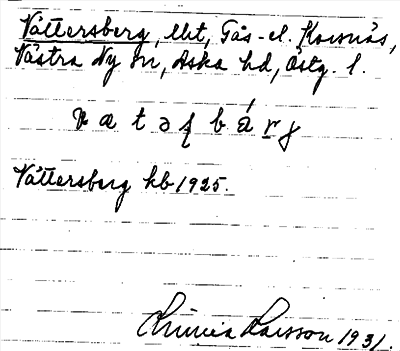 Vättersberg, lht, Gås- el. Korsnäs,
Västra Ny sn, Aska hd, Östg. l.
Vättersberg kb 1925.
Larsson 1931.